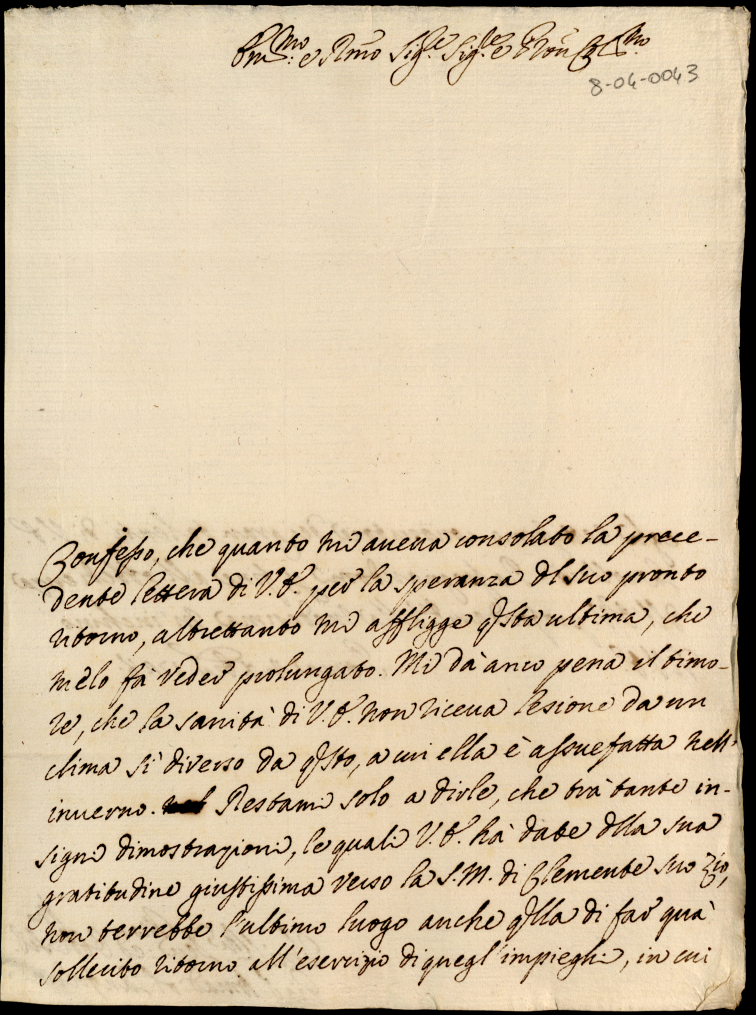 Em.mo e R.mo Sig.re Sig.re e Pron Col.mo
8-04-0043
Confesso, che quanto mi aueua consolato la prece-
dente lettera di V.E. per la speranza dl suo pronto
ritorno, altrettanto mi affligge qsta ultima, che
melo fà veder prolungato. Mi dà anco pena il timo-
re, che la sanità di V.E. non riceua lesione da un
clima sì diverso da qsto, a cui ella è assuefatta nell'
inuerno. Restami solo a dirle, che trà tante in-
signi dimostrazioni, le quali V.E. hà date dlla sua
gratitudine giustissima verso la S.M. di Clemente suo Zio,
non terrebbe l'ultimo luogo anche qlla di far quà
sollecito ritorno all'esercizio di quegl'impieghi, in cui